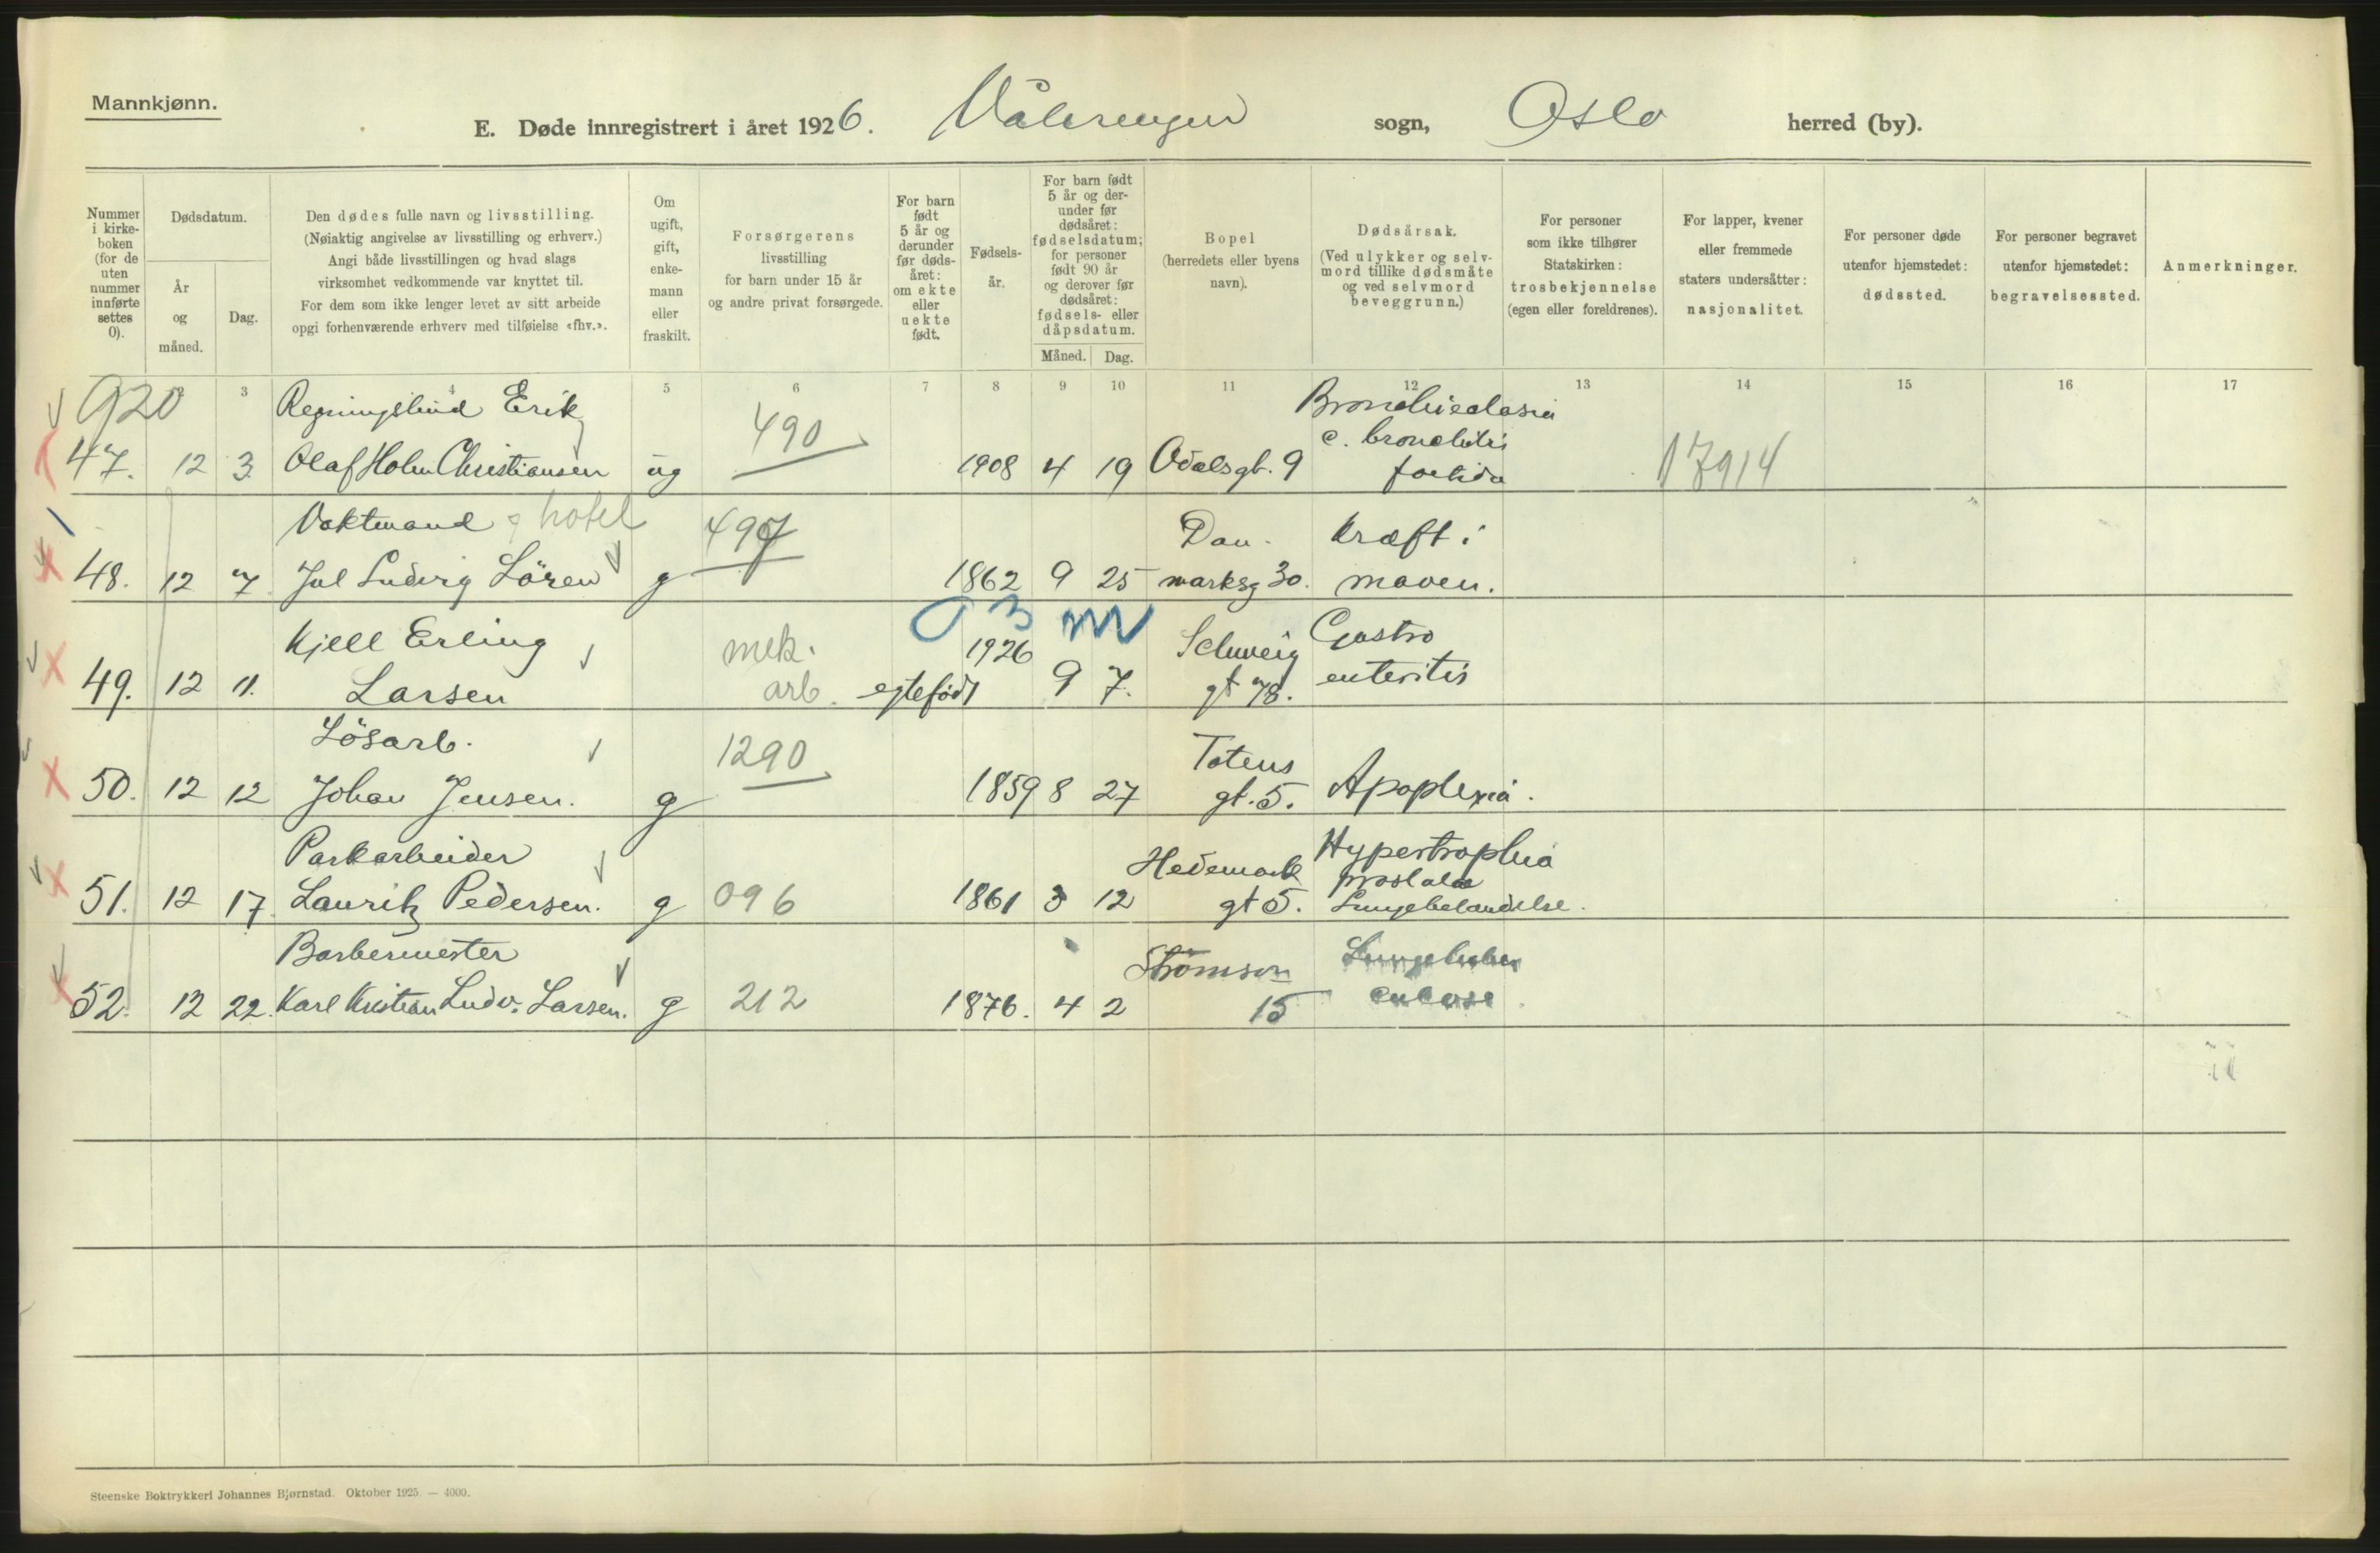 Mannkjønn.
E. Døde innregistrert i året 1926. Vålerengen sogn, Oslo herred (by).
Nummer i kirke-boken (for de uten nummer innførte settes 0).
Dødsdatum.
År og måned.
Dag.
Den dødes fulle navn og livsstilling.
(Nøiaktig angivelse av livsstilling og erhverv.)
Angi både livsstillingen og hvad slags
virksomhet vedkommende var knyttet til.
For dem som ikke lenger levet av sitt arbeide
opgi forhenværende erhverv med tilføielse «fhv.».
Om ugift, gift, enke-mann eller fraskilt.
Forsørgerens
livsstilling
for barn under 15 år
og andre privat forsørgede.
For barn født 5 år og derunder før døds-året: om ekte eller uekte født.
Fødsels-år.
For barn født 5 år og der-under før dødsåret: fødselsdatum; for personer født 90 år og derover før dødsåret: fødsels- eller dåpsdatum.
Måned. Dag.
Bopel
(herredets eller byens
navn).
Dødsårsak.
(Ved ulykker og selv-
mord tillike dødsmåte
og ved selvmord
beveggrunn.)
For personer
som ikke tilhører
Statskirken:
trosbekjennelse
(egen eller foreldrenes).
For lapper, kvener
eller fremmede
staters undersåtter:
nasjonalitet.
For personer døde
utenfor hjemstedet:
dødssted.
For personer begravet
utenfor hjemstedet:
begravelsessted.
Anmerkninger.
3 4 5 6 7 8 9 10 11 12 13 14 15 16 17
920 Regningsbud Erik 490 Bronchiectasia
c. bronchitis
47. 12 3. Olaf Holm Christiansen ug 1908 4 19 Odalsgt. 9 foetida 17914
Vaktmand hotel 497 Dan- Kræft i
48. 12 7. Jul Ludvig Lören g 1862 9 25 marksg 30. maven.
03 m
Kjell Erling mek. 1926 Schweig Gastro
49. 12 11. Larsen arb. egtefödt 9 7. gt 78. enteritis
Lösarb. 1290 Totens
50. 12 12 Johan Jensen. g 1859 8 27 gt. 5. Apoplexia.
Parkarbeider Hedemark Hypertrophia
prostatae
51. 12 17. Lauritz Pedersen. g 096 1861 3 12 gt 5. Lungebetændelse.
Barbermester Strömsv Lungetuber
52. 12 22. Karl Kristian Ludv. Larsen. g 212 1876. 4 2 15 culose.
Steenske Boktrykkeri Johannes Bjørnstad. Oktober 1925. — 4000.